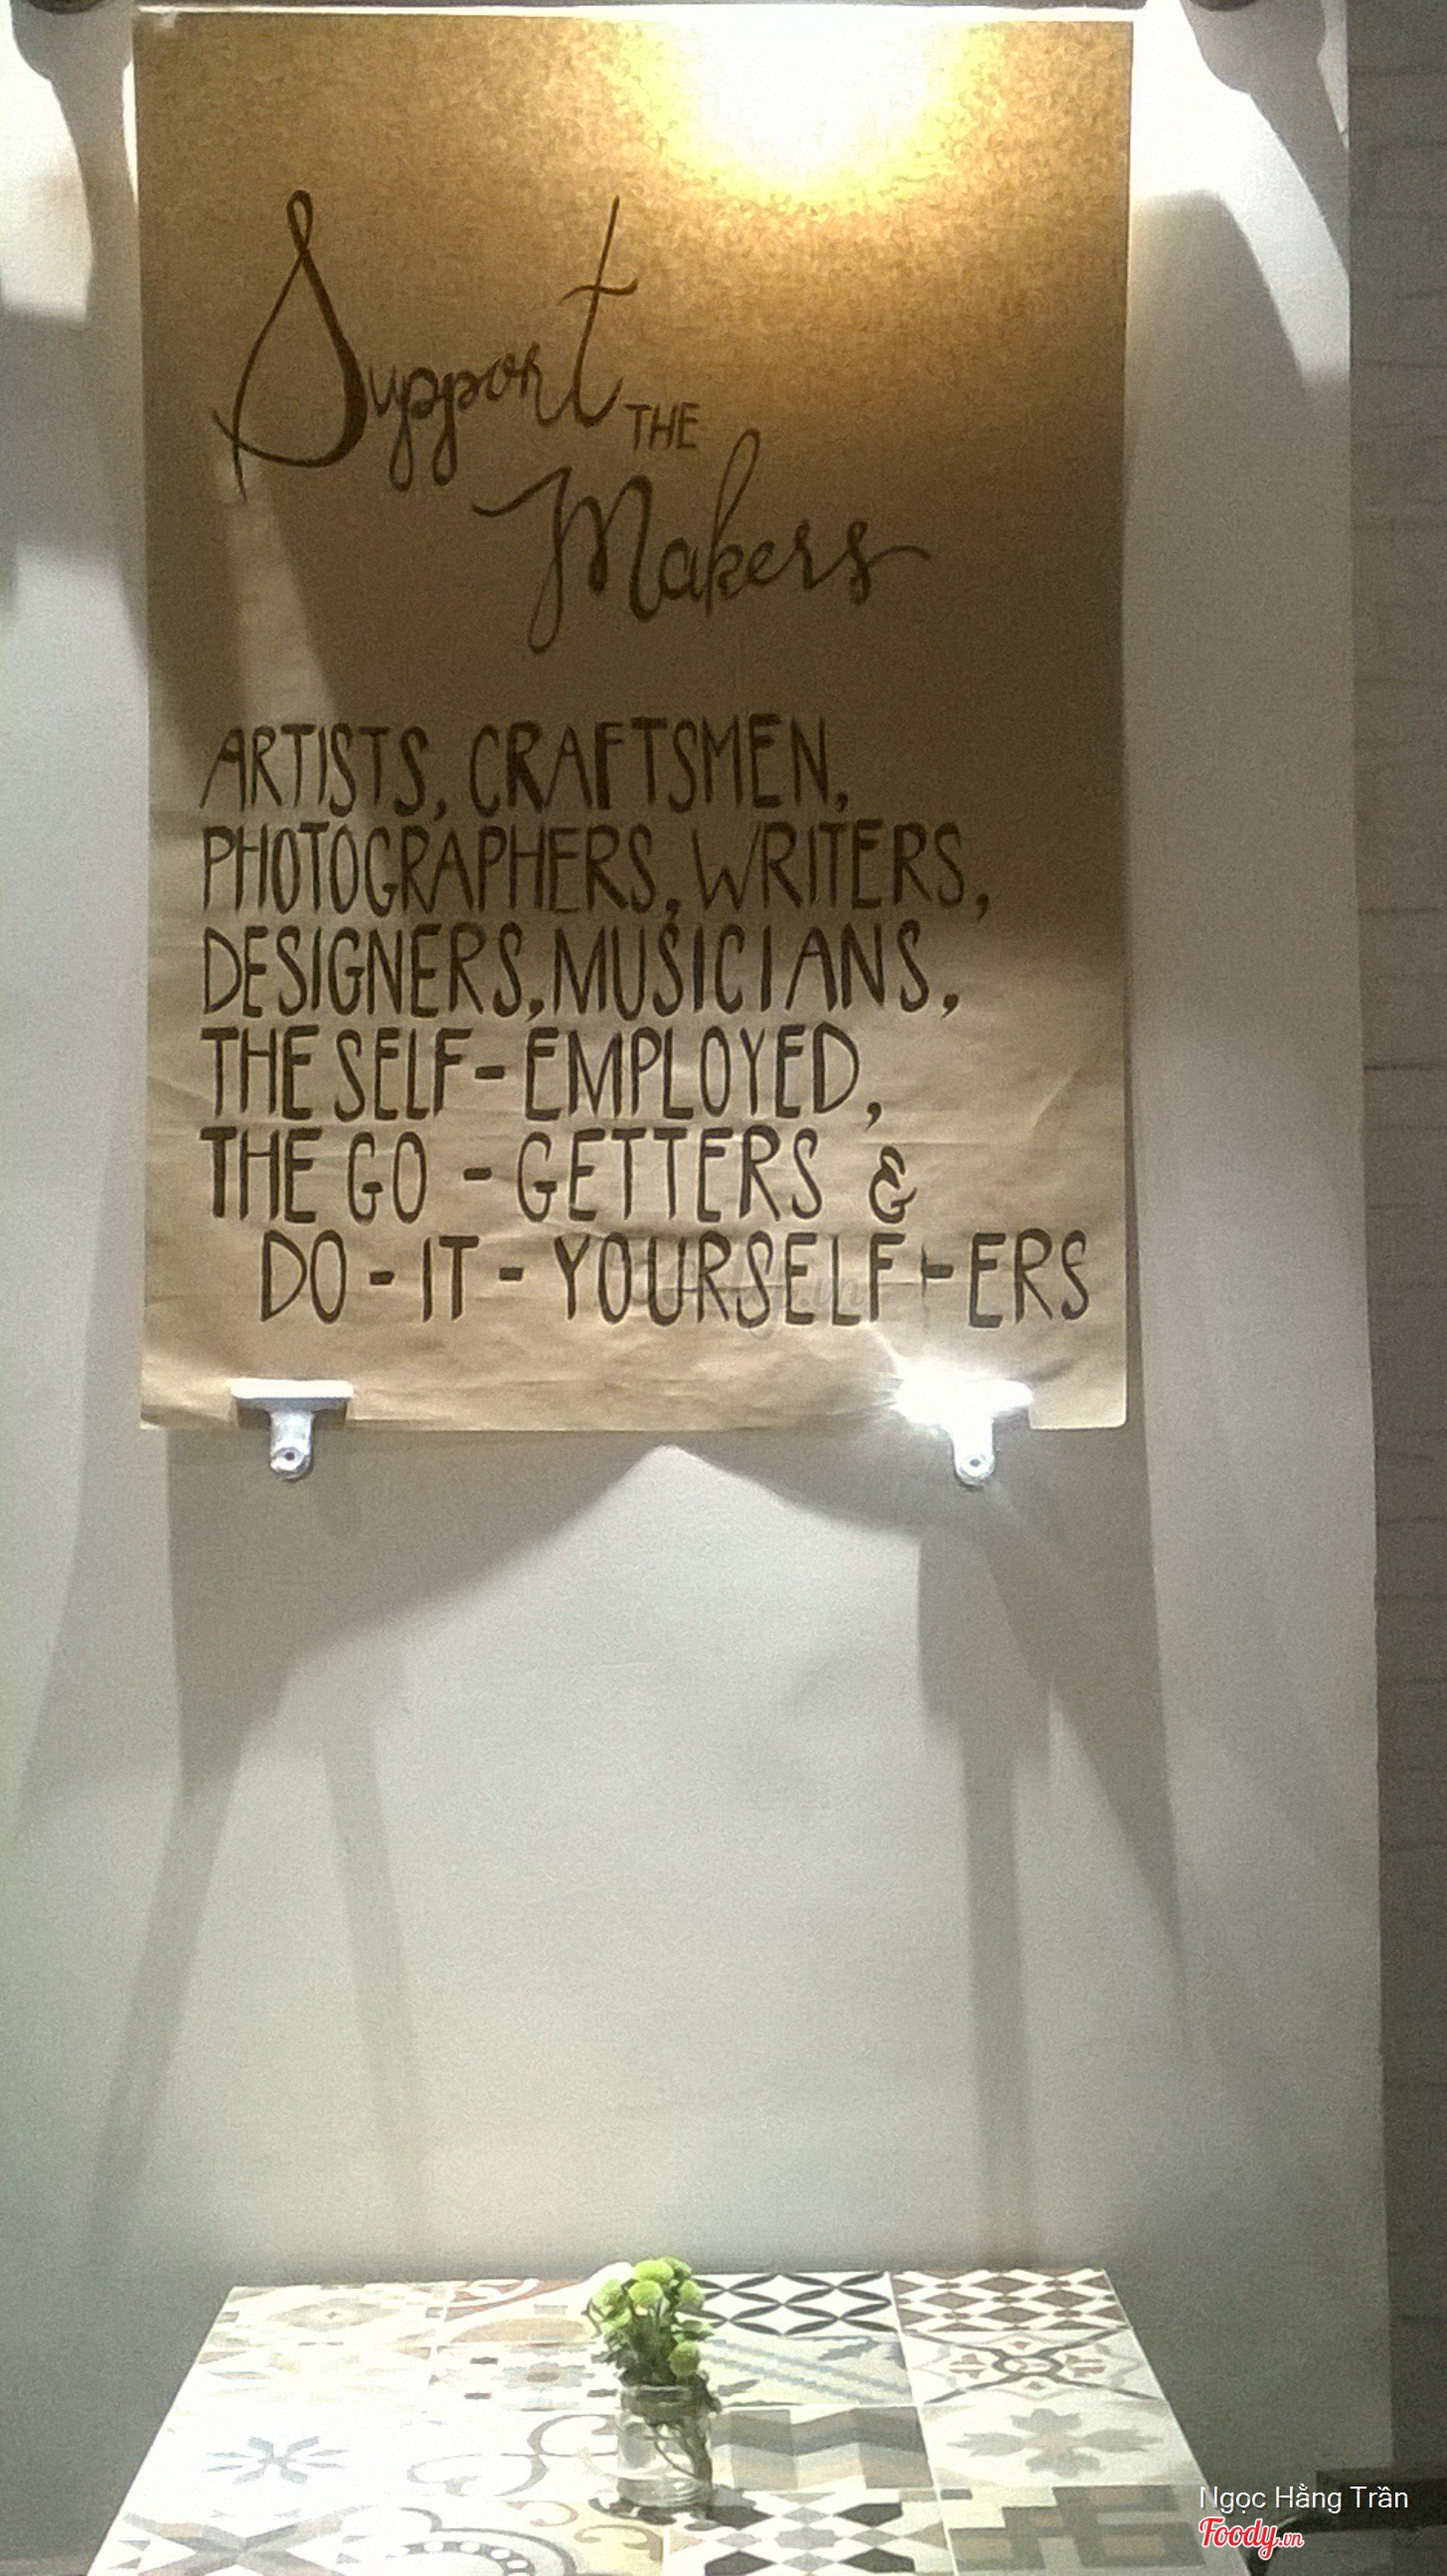 Support THE
Makers
ARTISTS, CRAFTSMEN,
PHOTOGRAPHERS, WRITERS,
DESIGNERS, MUSICIANS,
THE SELF-EMPLOYED,
THE GO-GETTERS &
DO-IT-YOURSELF-ERS
Ngọc Hằng Trần
Foody.vn